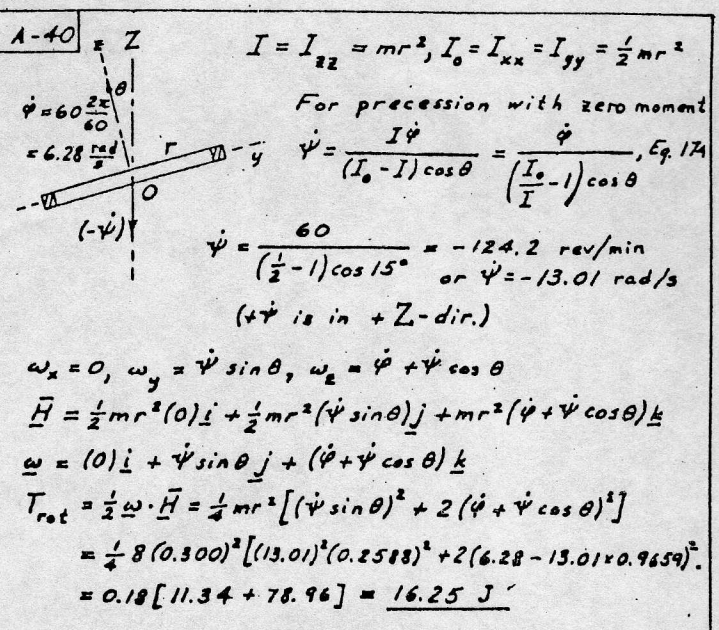 A-40
z Z
θ
φ̇ = 60 2π/60
= 6.28 rad/s
r
y
O
(-ψ̇)
I = I_zz = mr², I₀ = I_xx = I_yy = ½mr²
For precession with zero moment
ψ̇ = Iφ̇/((I₀ - I) cos θ) = φ̇/((I₀/I - 1) cos θ), Eq. 174
ψ̇ = 60/((½ - 1) cos 15°) = -124.2 rev/min
or ψ̇ = -13.01 rad/s
(+ψ̇ is in + Z-dir.)
ω_x = 0, ω_y = ψ̇ sin θ, ω_z = φ̇ + ψ̇ cos θ
H̄ = ½mr²(0)i + ½mr²(ψ̇ sin θ)j + mr²(φ̇ + ψ̇ cos θ)k
ω = (0)i + ψ̇ sin θ j + (φ̇ + ψ̇ cos θ) k
T_rot = ½ω·H̄ = ¼mr²[(ψ̇ sin θ)² + 2(φ̇ + ψ̇ cos θ)²]
= ¼ 8(0.300)²[(13.01)²(0.2588)² + 2(6.28 - 13.01×0.9659)².
= 0.18[11.34 + 78.96] = 16.25 J